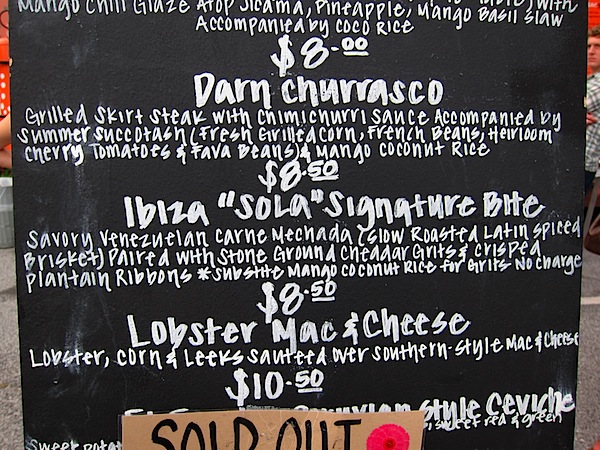 Mango Chili Glaze Atop Jicama, Pineapple, Mango Basil Slaw with
Accompanied by Coco Rice
$8.00
Darn Churrasco
Grilled Skirt Steak with Chimichurri Sauce Accompanied by
Summer Succotash (Fresh Grilled Corn, French Beans, Heirloom
Cherry Tomatoes & Fava Beans) & Mango Coconut Rice
$8.50
Ibiza "SOLA" Signature Bite
Savory Venezuelan Carne Mechada (Slow Roasted Latin Spiced
Brisket) Paired with Stone Ground Cheddar Grits & Crisped
Plantain Ribbons *Substite Mango Coconut Rice for Grits No charge
$8.50
Lobster Mac & Cheese
Lobster, Corn & Leeks sauteed over southern-style Mac & Cheese
$10.50
Style Ceviche
sweet red & green
SOLD OUT
Sweet